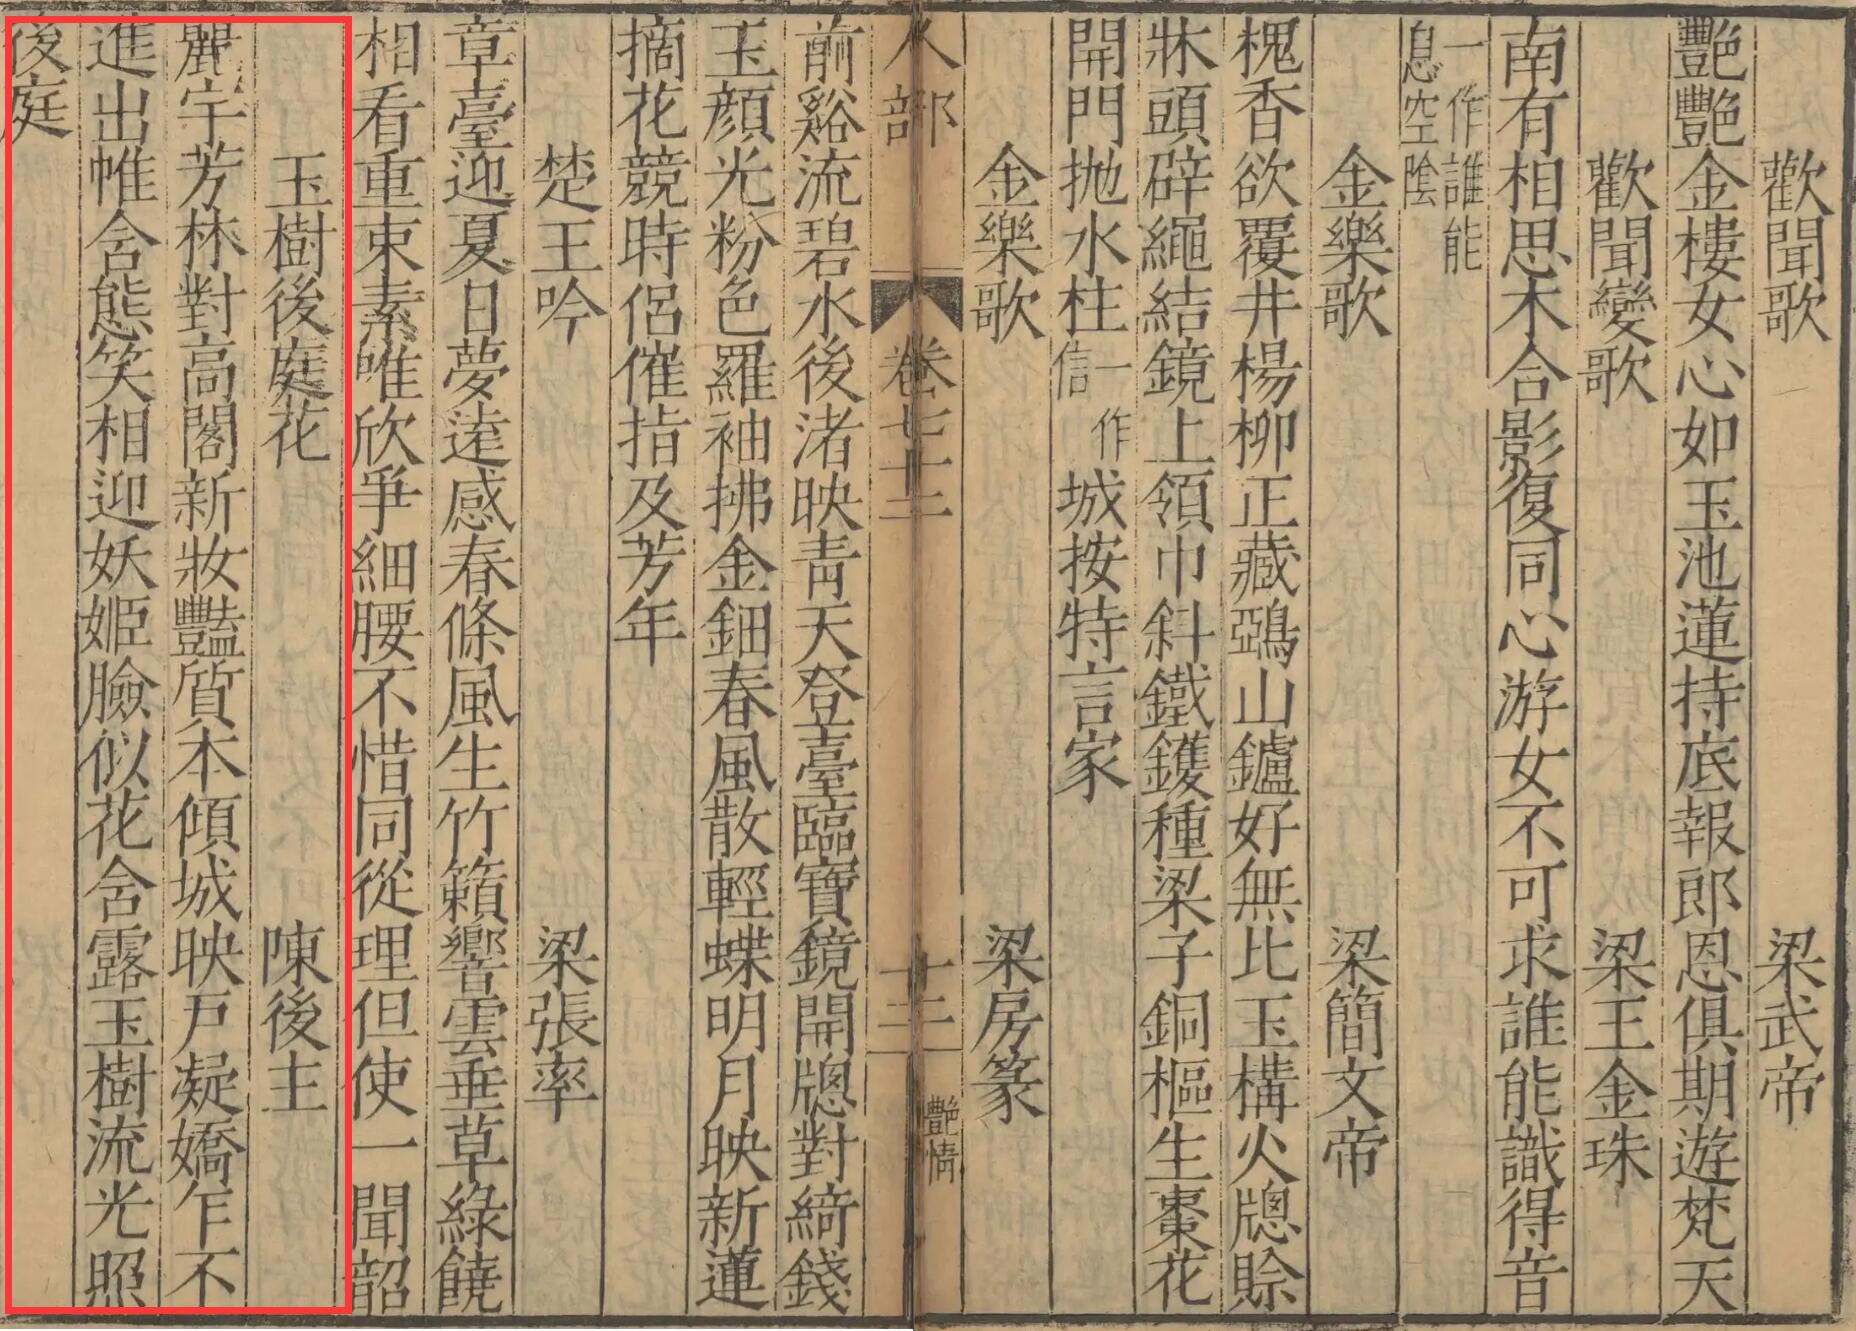 歡聞歌 梁武帝
艷艷金樓女心如玉池蓮持底報郎恩俱期遊梵天
歡聞變歌 梁王金珠
南有相思木合影復同心游女不可求誰能識得音
一作誰能
息空陰
金樂歌 梁簡文帝
槐香欲覆井楊柳正藏鵶山鑪好無比玉構火牕賖
牀頭辟繩結鏡上領巾斜鐵鑊種梁子銅樞生棗花
開門拋水柱一作信城按特言家
金樂歌 梁房篆
人部 卷七十二 十二 艷情
前谿流碧水後渚映青天登臺臨寶鏡開牕對綺錢
玉顏光粉色羅袖拂金鈿春風散輕蝶明月映新蓮
摘花競時侶催指及芳年
楚王吟 梁張率
章臺迎夏日夢遠感春條風生竹籟響雲垂草綠饒
相看重束素唯欣爭細腰不惜同從理但使一聞韶
玉樹後庭花 陳後主
麗宇芳林對高閣新妝豔質本傾城映戶凝嬌乍不
進出帷含態笑相迎妖姬臉似花含露玉樹流光照
後庭